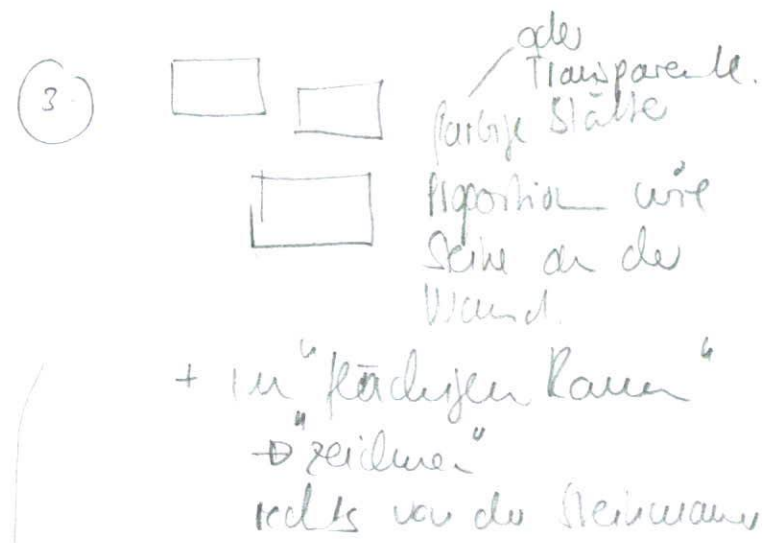 3
oder
Transparente.
farbige Blätter
Proportion wie
Seite an der
Wand.
+ im "flächigen Raum"
→ "zeichnen"
rechts von der Steinmauer